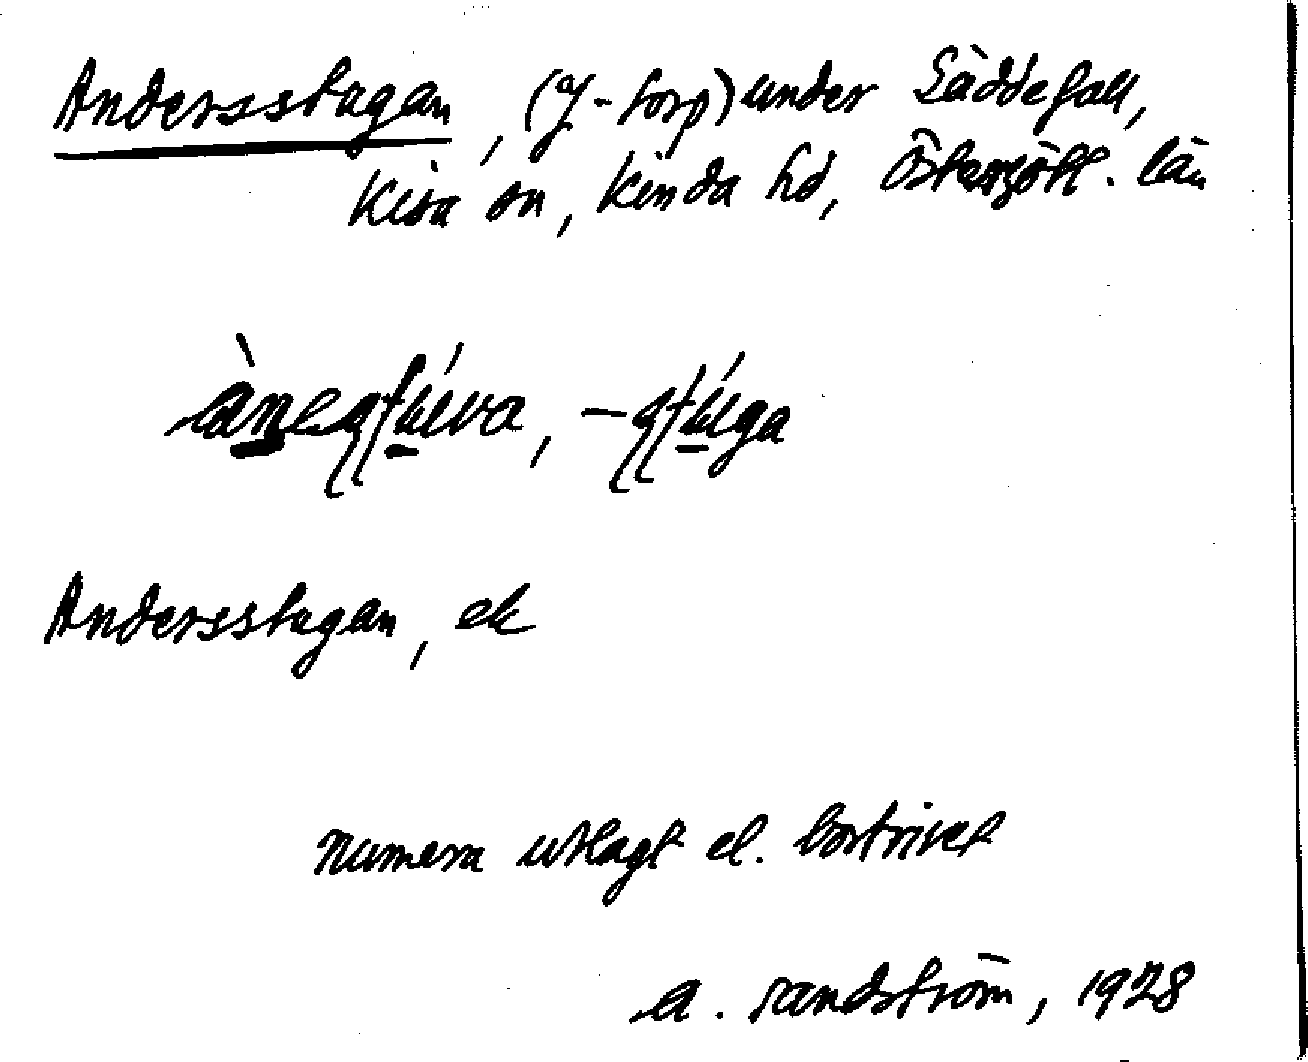 Andersstugan, (f-torp) under Säddefall,
Kisa sn, Kinda hd, Östergötl. län
Andersstugan, ek
numera utlagt el. bortrivet
A. Sandström, 1928